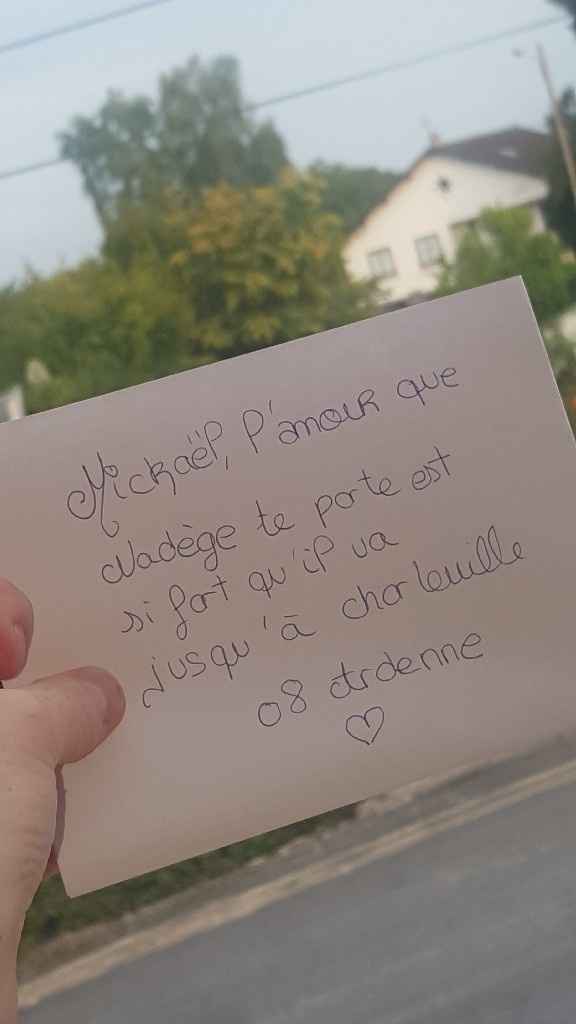 Mickaël, l'amour que
Nadège te porte est
si fort qu'il va
jusqu'à charleville
08 Ardenne